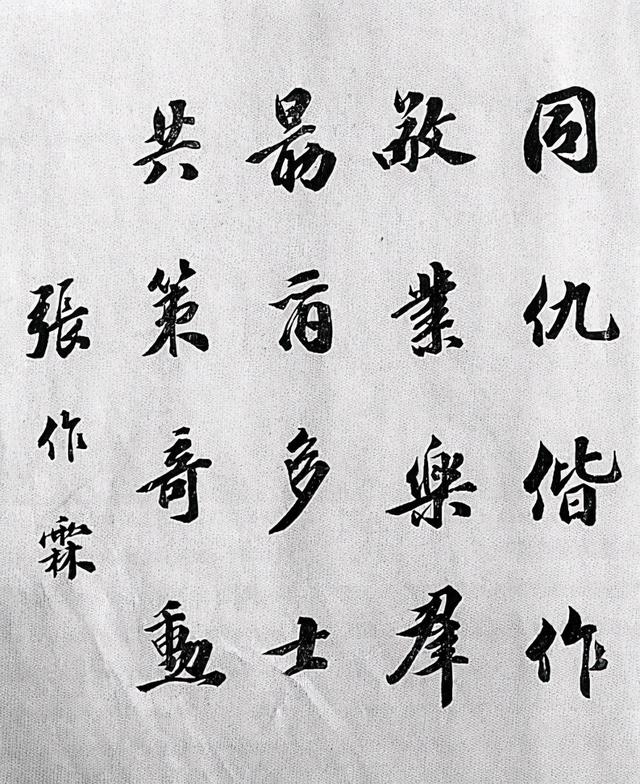 同仇偕作
敬業樂羣
勗爾多士
共策竒勳
張作霖